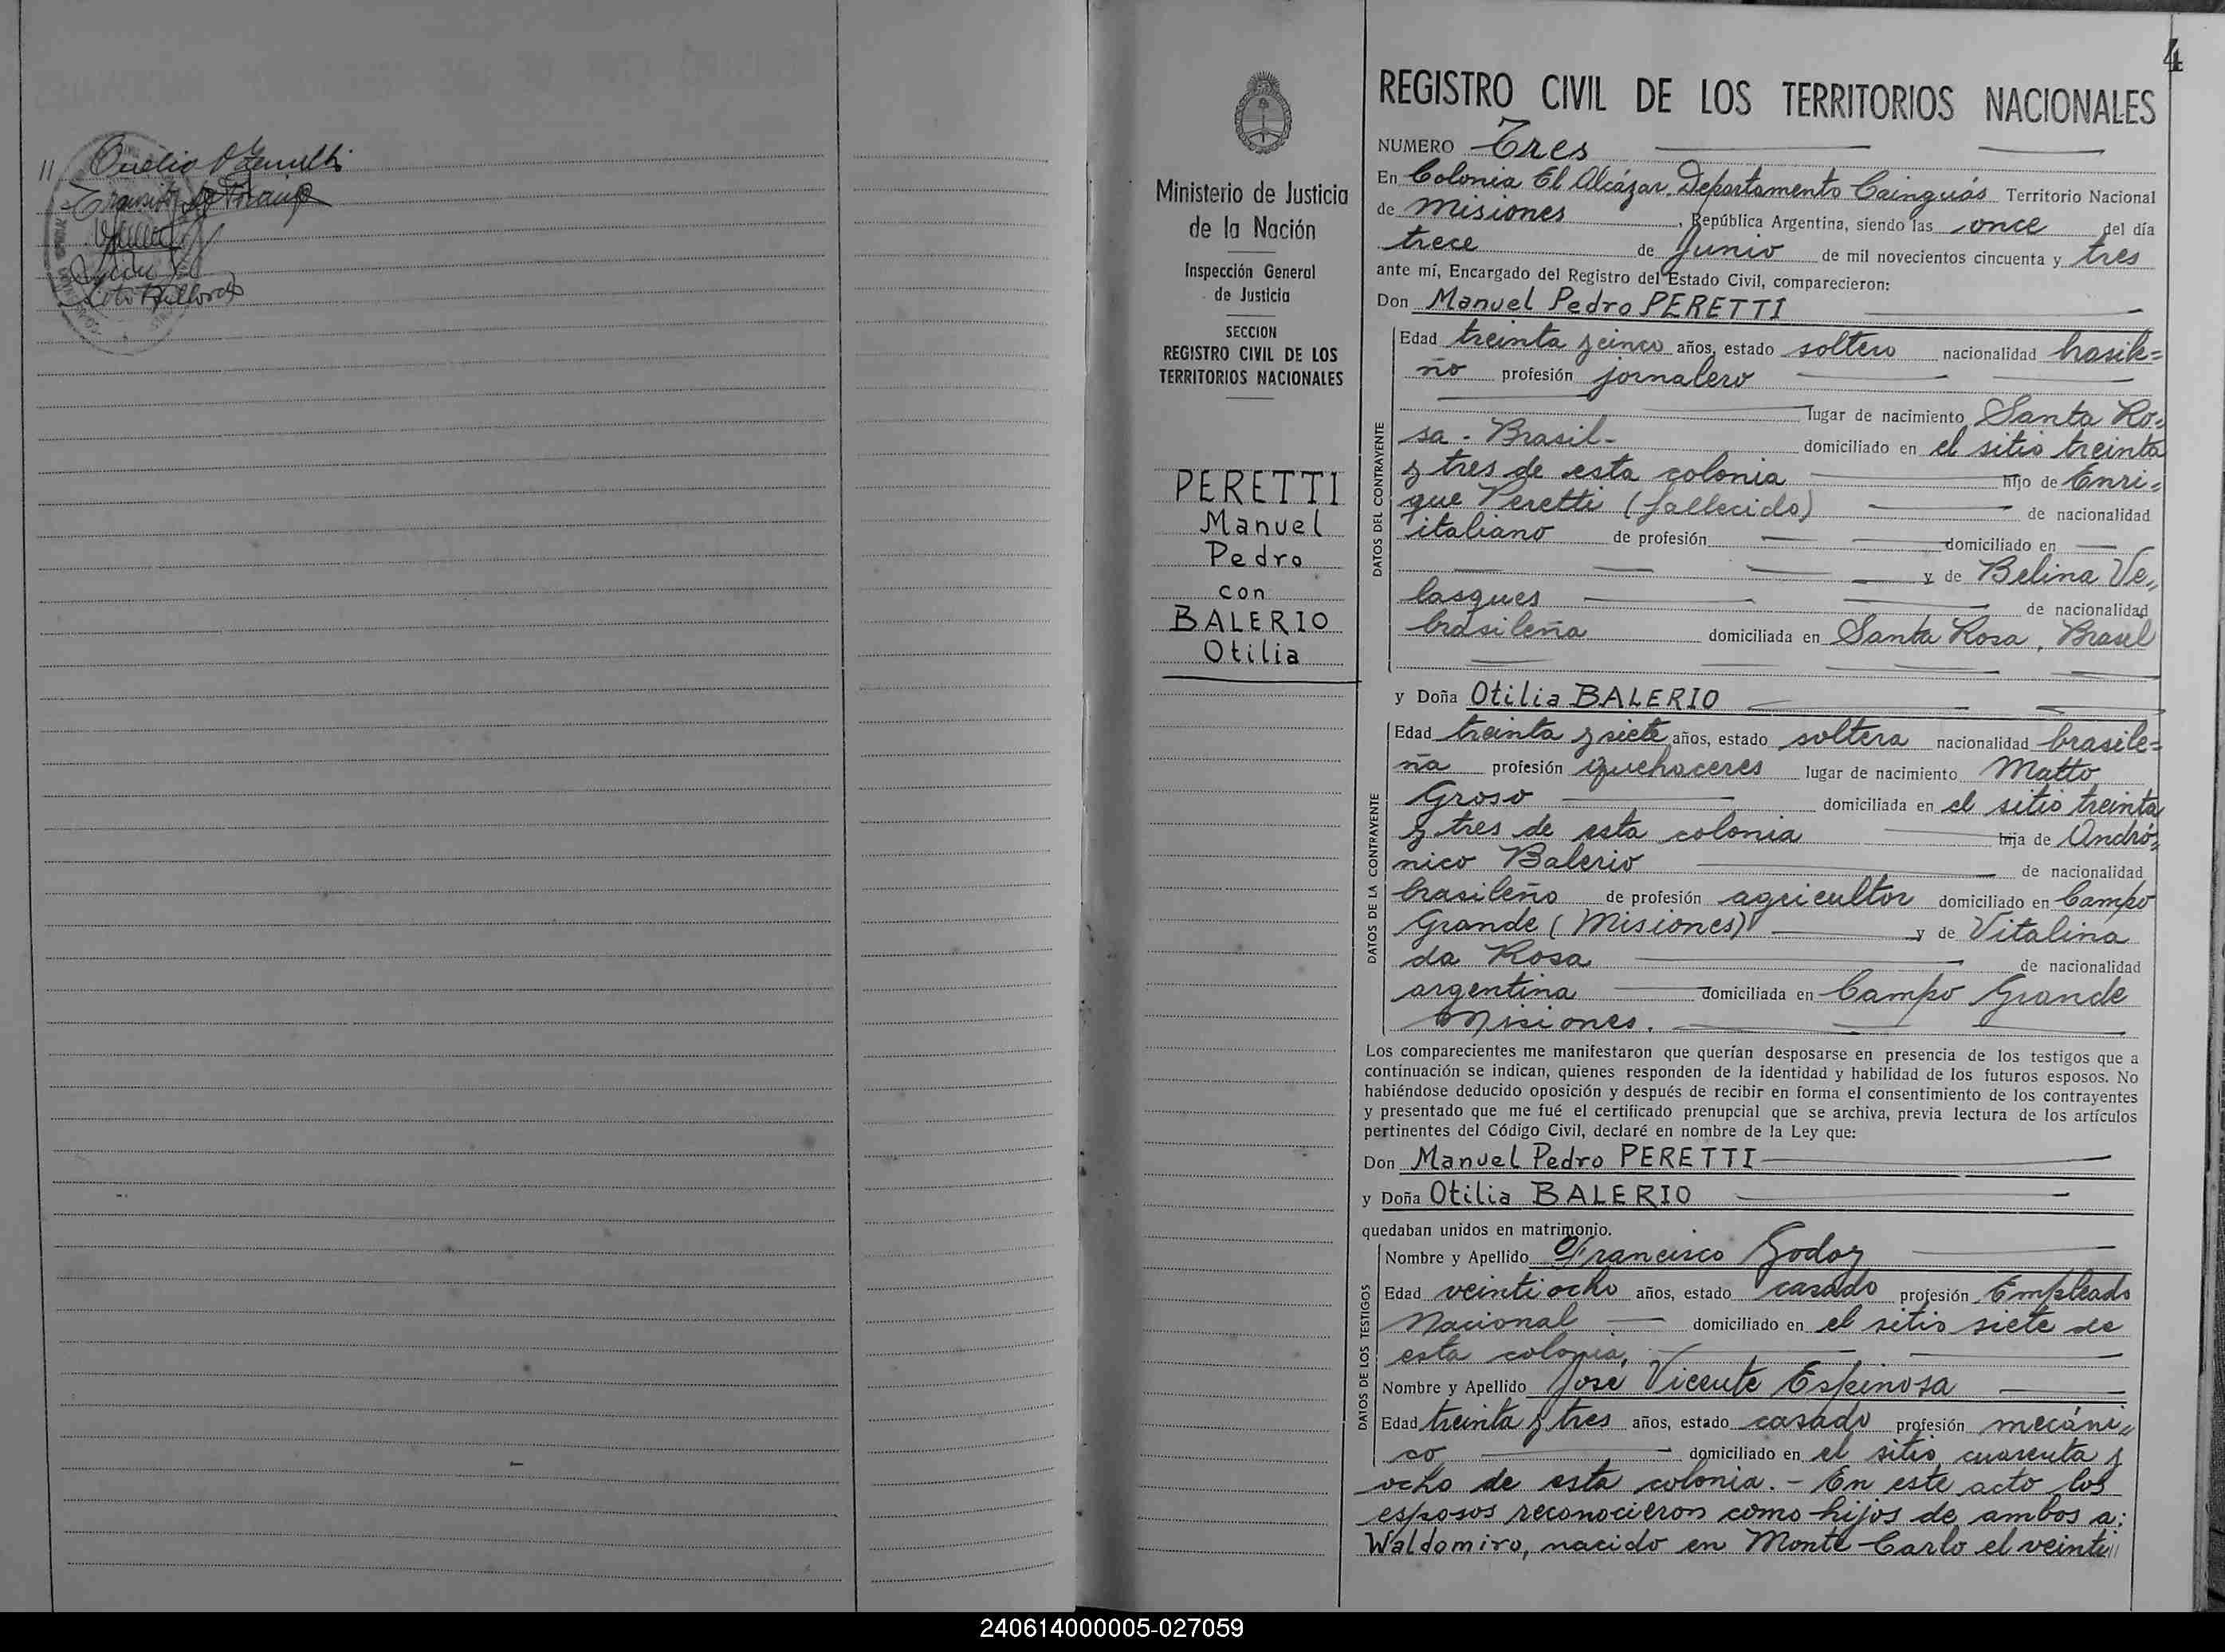 11
4
REGISTRO CIVIL DE LOS TERRITORIOS NACIONALES
Ministerio de Justicia
de la Nación
Inspección General
de Justicia
SECCION
REGISTRO CIVIL DE LOS
TERRITORIOS NACIONALES
PERETTI
Manuel
Pedro
con
BALERIO
Otilia
NUMERO Tres
En Colonia El Alcázar, Departamento Cainguás Territorio Nacional
de Misiones, República Argentina, siendo las once del día
trece de Junio de mil novecientos cincuenta y tres
ante mí, Encargado del Registro del Estado Civil, comparecieron:
Don Manuel Pedro PERETTI
DATOS DEL CONTRAYENTE
Edad treinta y cinco años, estado soltero nacionalidad brasile=
ño profesión jornalero
lugar de nacimiento Santa Ro=
sa - Brasil- domiciliado en el sitio treinta
y tres de esta colonia hijo de Enri=
que Peretti (fallecido) de nacionalidad
italiano de profesión domiciliado en
y de Belina Ve,,
lasques de nacionalidad
brasileña domiciliada en Santa Rosa, Brasil
y Doña Otilia BALERIO
DATOS DE LA CONTRAYENTE
Edad treinta y siete años, estado soltera nacionalidad brasile=
ña profesión quehaceres lugar de nacimiento Matto
Groso domiciliada en el sitio treinta
y tres de esta colonia hija de Andró,,
nico Balerio de nacionalidad
brasileño de profesión agricultor domiciliado en Campo
Grande (Misiones) y de Vitalina
da Rosa de nacionalidad
argentina domiciliada en Campo Grande
Misiones.
Los comparecientes me manifestaron que querían desposarse en presencia de los testigos que a
continuación se indican, quienes responden de la identidad y habilidad de los futuros esposos. No
habiéndose deducido oposición y después de recibir en forma el consentimiento de los contrayentes
y presentado que me fué el certificado prenupcial que se archiva, previa lectura de los artículos
pertinentes del Código Civil, declaré en nombre de la Ley que:
Don Manuel Pedro PERETTI
y Doña Otilia BALERIO
quedaban unidos en matrimonio.
DATOS DE LOS TESTIGOS
Nombre y Apellido Francisco Godoy
Edad veintiocho años, estado casado profesión Empleado
Nacional domiciliado en el sitio siete de
esta colonia,
Nombre y Apellido José Vicente Espinosa
Edad treinta y tres años, estado casado profesión mecáni,,
co domiciliado en el sitio cuarenta y
ocho de esta colonia. - En este acto los
esposos reconocieron como hijos de ambos a:
Waldomiro, nacido en Monte Carlo el veinti
240614000005-027059